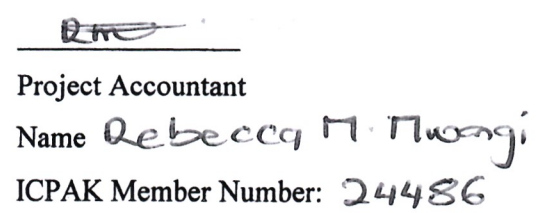 Project Accountant
Name Rebecca M. Mwangi
ICPAK Member Number: 24486